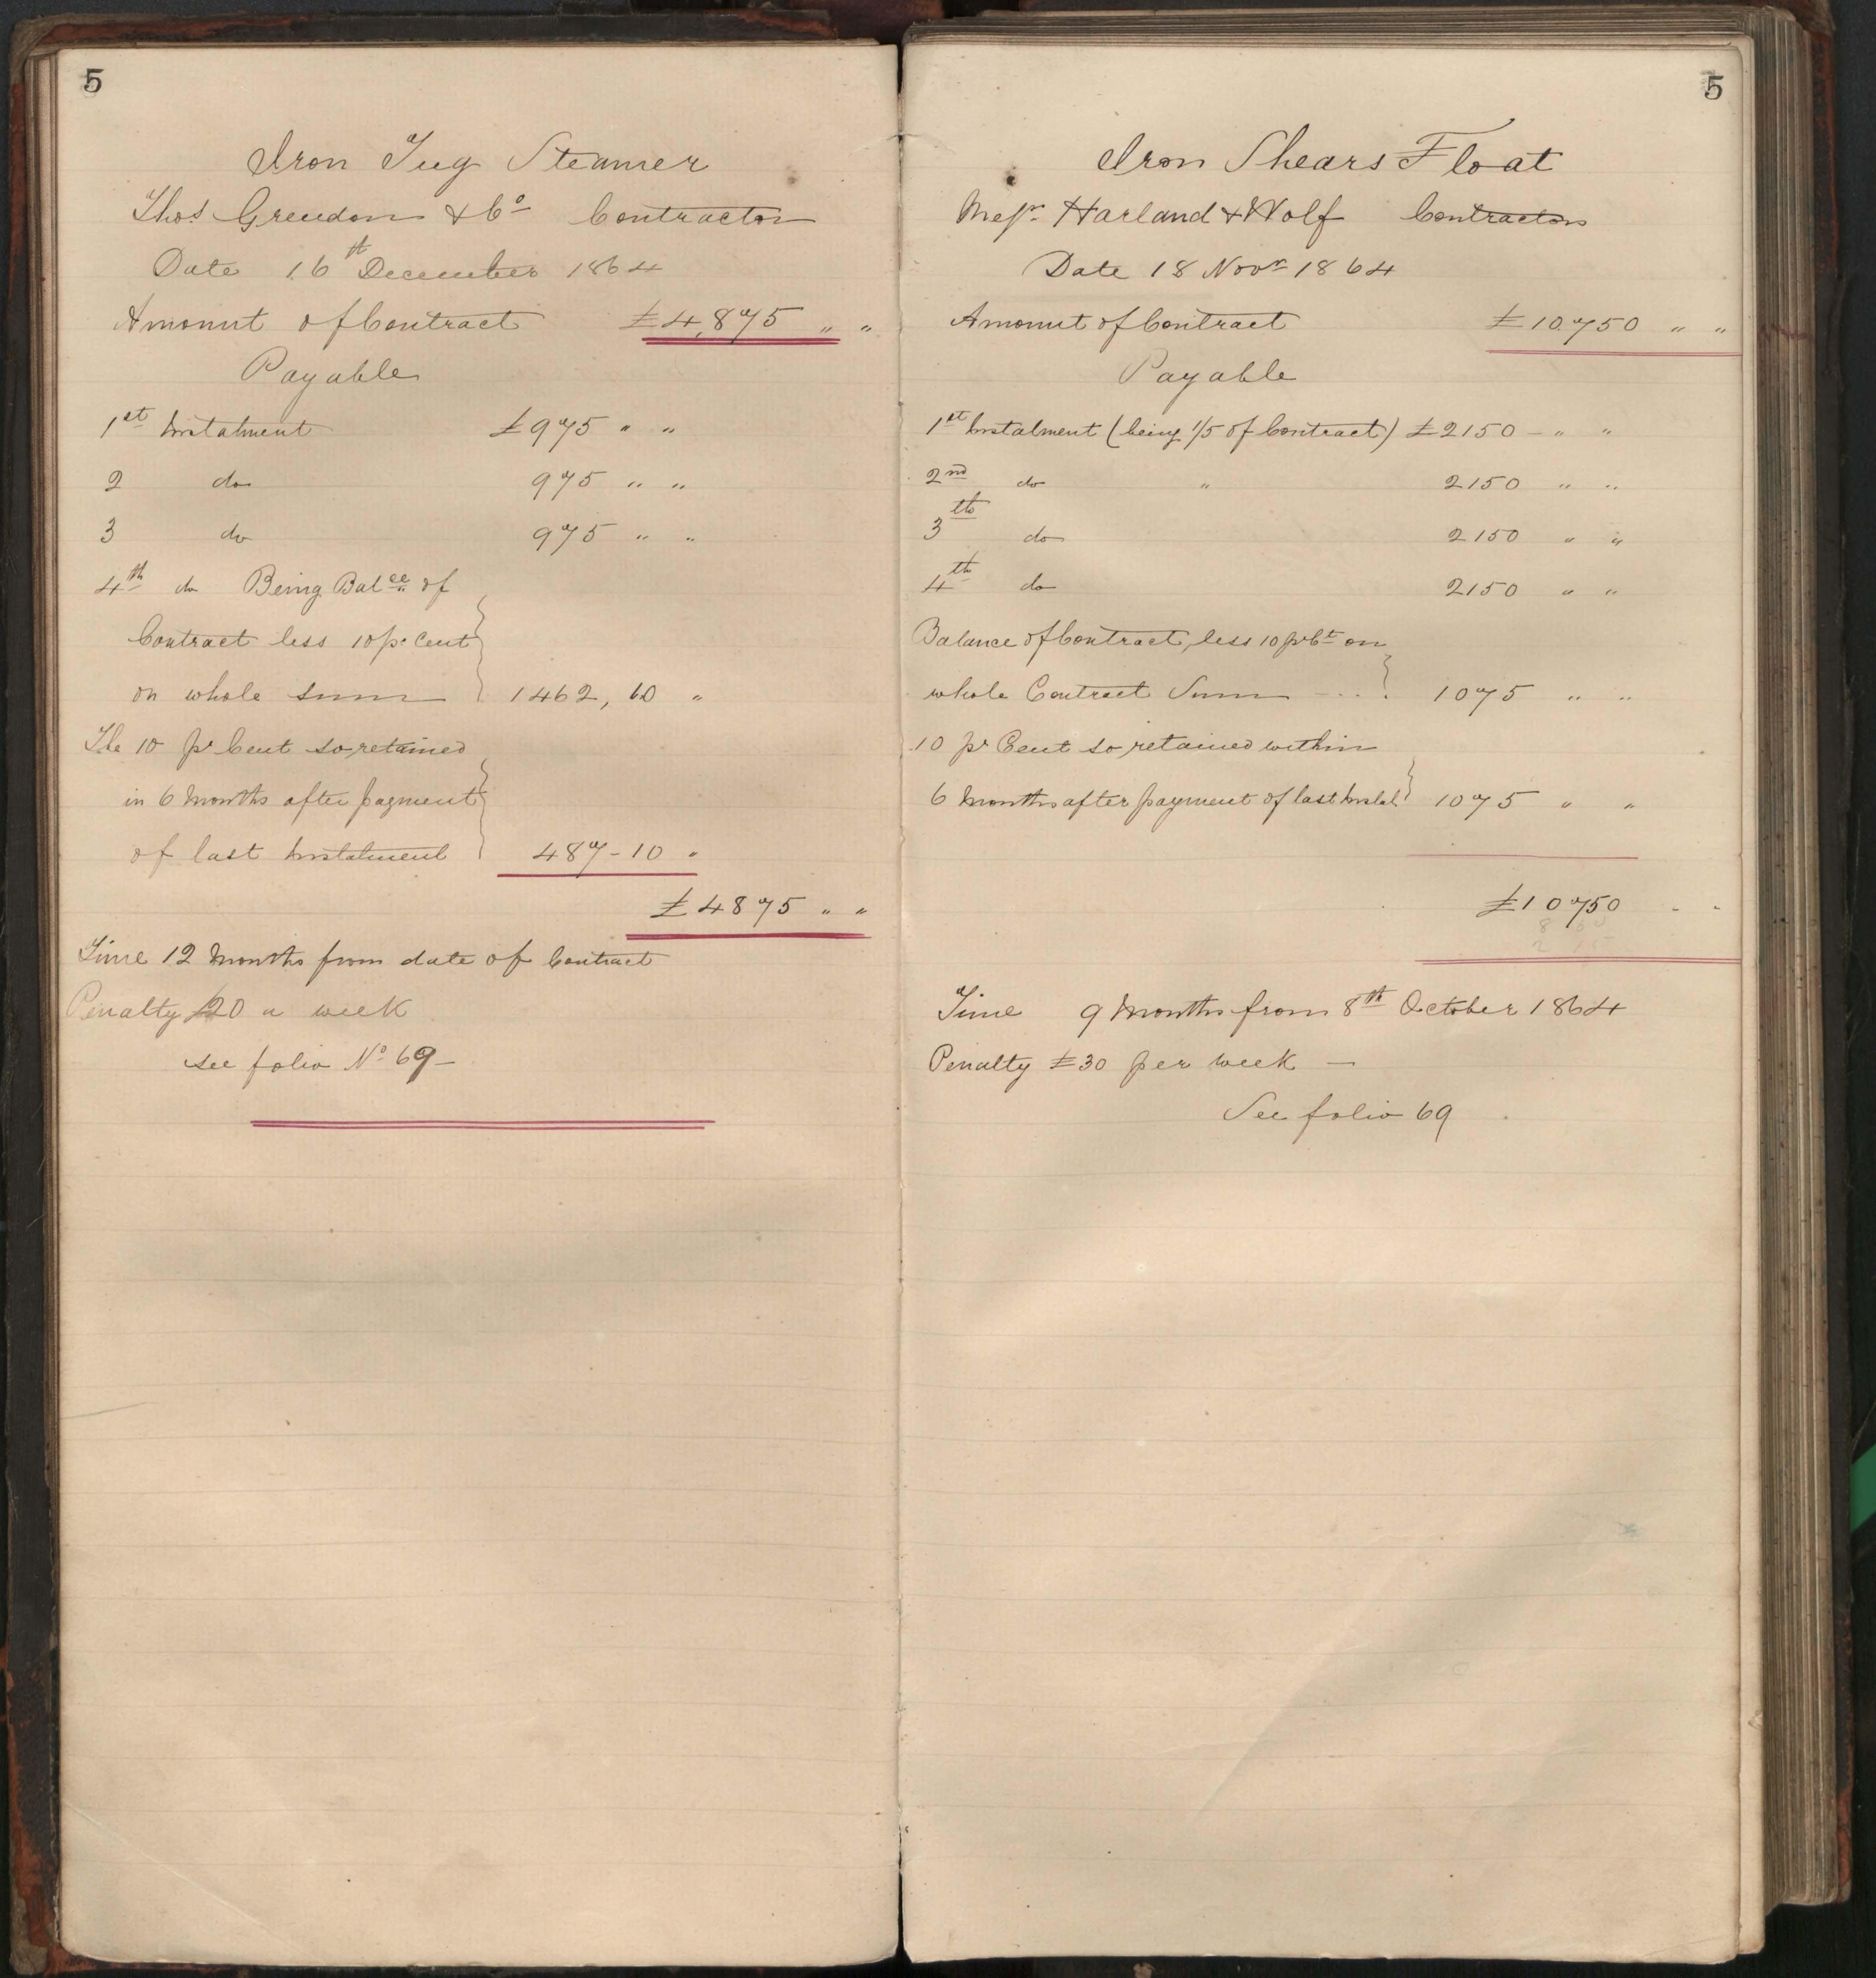 5
Iron Tug Steamer
Thos Grendon & Co Contractor
Date 16th December 1864
Amount of Contract £4,875 " "
Payable
1st Instalment £975 " "
2 do 975 " "
3 do 975 " "
4th do Being Balce of
Contract less 10 pr Cent
on whole sum 1462, 10 "
The 10 pr Cent so retained
in 6 Months after payment
of last Instalment 487-10 "
£4875 " "
Time 12 Months from date of Contract
Penalty £20 a week
see folio No 69-
5
Iron Shears Float
Messrs Harland & Wolf Contractors
Date 18 Novr 1864
Amount of Contract £10.750 " "
Payable
1st Instalment (being 1/5 of Contract) £2150 - " "
2nd do " 2150 " "
3th do 2150 " "
4th do 2150 " "
Balance of Contract, less 10 pr Ct on
whole Contract Sum - . . . 1075 " "
10 pr Cent so retained within
6 Months after payment of last Instal. 1075 " "
£10750 - -
Time 9 Months from 8th October 1864
Penalty £30 per week —
See folio 69